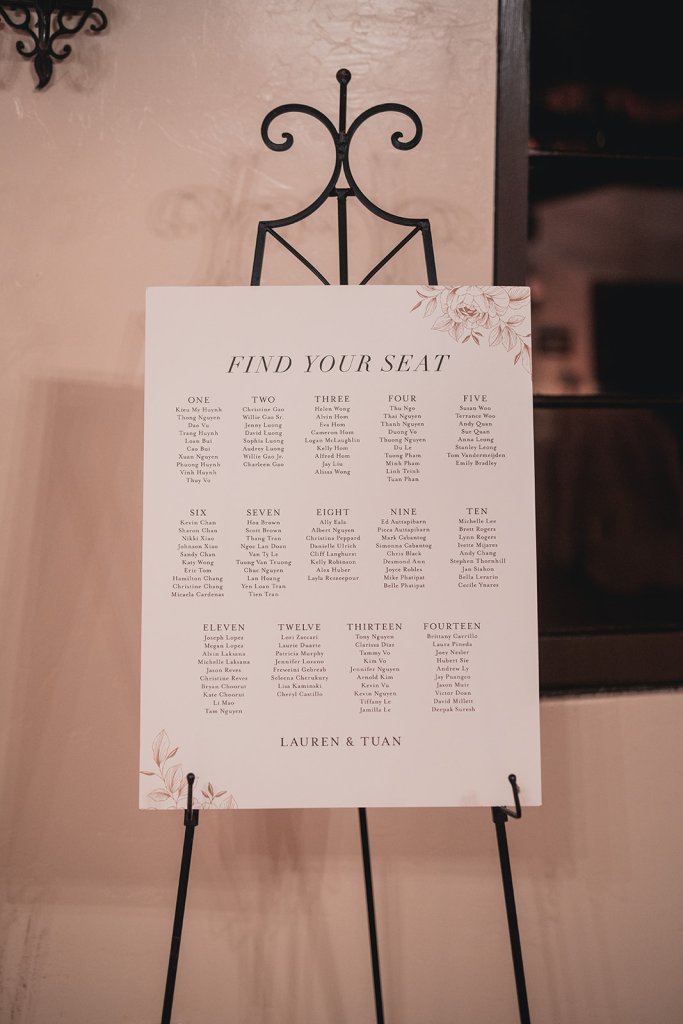 FIND YOUR SEAT
ONE
Kieu My Huynh
Thong Nguyen
Dao Vu
Trang Huynh
Loan Bui
Cao Bui
Xuan Nguyen
Phuong Huynh
Vinh Huynh
Thuy Vo
TWO
Christine Gao
Willie Gao Sr.
Jenny Luong
David Luong
Sophia Luong
Audrey Luong
Willie Gao Jr.
Charleen Gao
THREE
Helen Wong
Alvin Hom
Eva Hom
Cameron Hom
Logan McLaughlin
Kelly Hom
Alfred Hom
Jay Liu
Alissa Wong
FOUR
Thu Ngo
Thai Nguyen
Thanh Nguyen
Duong Vo
Thuong Nguyen
Du Le
Tuong Pham
Minh Pham
Linh Trinh
Tuan Phan
FIVE
Susan Woo
Terrance Woo
Andy Quan
Sue Quan
Anna Leong
Stanley Leong
Tom Vandermeijden
Emily Bradley
SIX
Kevin Chan
Sharon Chan
Nikki Xiao
Johnson Xiao
Sandy Chan
Katy Wong
Eric Tom
Hamilton Chang
Christine Chang
Micaela Cardenas
SEVEN
Hoa Brown
Scott Brown
Thang Tran
Ngoc Lan Doan
Van Ty Le
Tuong Van Truong
Chuc Nguyen
Lan Hoang
Yen Loan Tran
Tien Tran
EIGHT
Ally Eala
Albert Nguyen
Christina Peppard
Danielle Ulrich
Cliff Langhurst
Kelly Robinson
Alex Huber
Layla Rezaeepour
NINE
Ed Auttapibarn
Picca Auttapibarn
Mark Cabantog
Simonna Cabantog
Chris Black
Desmond Ann
Joyce Robles
Mike Phatipat
Belle Phatipat
TEN
Michelle Lee
Brett Rogers
Lynn Rogers
Ivette Mijares
Andy Chang
Stephen Thornhill
Jan Siahon
Bella Lerario
Cecile Ynares
ELEVEN
Joseph Lopez
Megan Lopez
Alvin Laksana
Michelle Laksana
Jason Reves
Christine Reves
Bryan Choorut
Kate Choorut
Li Mao
Tam Nguyen
TWELVE
Lori Zaccari
Laurie Duarte
Patricia Murphy
Jennifer Lozano
Freweini Gebreab
Seleena Cherukury
Lisa Kaminski
Cheryl Castillo
THIRTEEN
Tony Nguyen
Clarissa Diaz
Tammy Vo
Kim Vo
Jennifer Nguyen
Arnold Kim
Kevin Vu
Kevin Nguyen
Tiffany Le
Jamilla Le
FOURTEEN
Brittany Carrillo
Laura Pineda
Joey Nesler
Hubert Sie
Andrew Ly
Jay Puangco
Jason Muir
Victor Doan
David Millett
Deepak Suresh
LAUREN & TUAN